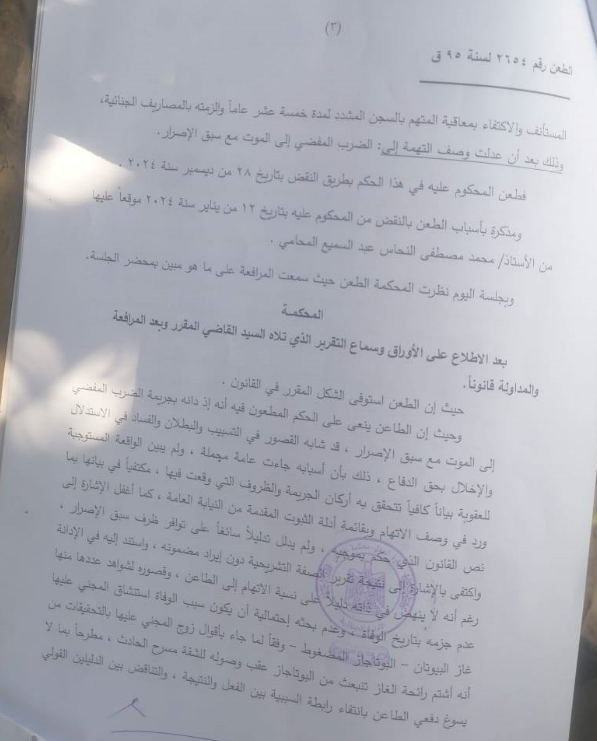 (٣)
الطعن رقم ٢٦٥٤ لسنة ٩٥ ق
المستأنف والاكتفاء بمعاقبة المتهم بالسجن المشدد لمدة خمسة عشر عاماً وألزمته بالمصاريف الجنائية،
وذلك بعد أن عدلت وصف التهمة إلى: الضرب المفضي إلى الموت مع سبق الإصرار.
فطعن المحكوم عليه في هذا الحكم بطريق النقض بتاريخ ٢٨ من ديسمبر سنة ٢٠٢٤ .
ومذكرة بأسباب الطعن بالنقض من المحكوم عليه بتاريخ ١٢ من يناير سنة ٢٠٢٤ موقعاً عليها
من الأستاذ/ محمد مصطفى النحاس عبد السميع المحامي .
وبجلسة اليوم نظرت المحكمة الطعن حيث سمعت المرافعة على ما هو مبين بمحضر الجلسة.
المحكمـة
بعد الاطلاع على الأوراق وسماع التقرير الذي تلاه السيد القاضي المقرر وبعد المرافعة
والمداولة قانوناً.
حيث إن الطعن استوفى الشكل المقرر في القانون .
وحيث إن الطاعن ينعى على الحكم المطعون فيه أنه إذ دانه بجريمة الضرب المفضي
إلى الموت مع سبق الإصرار ، قد شابه القصور في التسبيب والبطلان والفساد في الاستدلال
والإخلال بحق الدفاع ، ذلك بأن أسبابه جاءت عامة مجملة ، ولم يبين الواقعة المستوجبة
للعقوبة بياناً كافياً تتحقق به أركان الجريمة والظروف التي وقعت فيها ، مكتفياً في بيانها بما
ورد في وصف الاتهام وبقائمة أدلة الثبوت المقدمة من النيابة العامة ، كما أغفل الإشارة إلى
نص القانون الذي حكم بموجبه ، ولم يدلل تدليلاً سائغاً على توافر ظرف سبق الإصرار ،
واكتفى بالإشارة إلى نتيجة تقرير الصفة التشريحية دون إيراد مضمونه ، واستند إليه في الإدانة
رغم أنه لا ينهض في ذاته دليلاً على نسبة الاتهام إلى الطاعن ، وقصوره لشواهد عددها منها
عدم جزمه بتاريخ الوفاة ، وعدم بحثه إحتمالية أن يكون سبب الوفاة استنشاق المجني عليها
غاز البيوتان – البوتاجاز المضغوط – وفقاً لما جاء بأقوال زوج المجني عليها بالتحقيقات من
أنه أشتم رائحة الغاز تنبعث من البوتاجاز عقب وصوله للشقة مسرح الحادث ، مطرحاً بما لا
يسوغ دفعي الطاعن بانتفاء رابطة السببية بين الفعل والنتيجة ، والتناقض بين الدليلين القولي